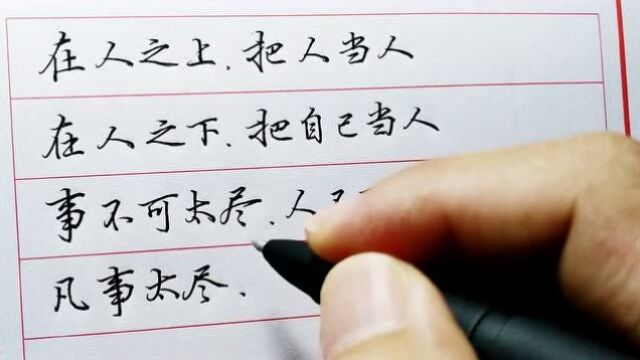 在人之上.把人当人
在人之下.把自己当人
事不可太尽.人
凡事太尽.